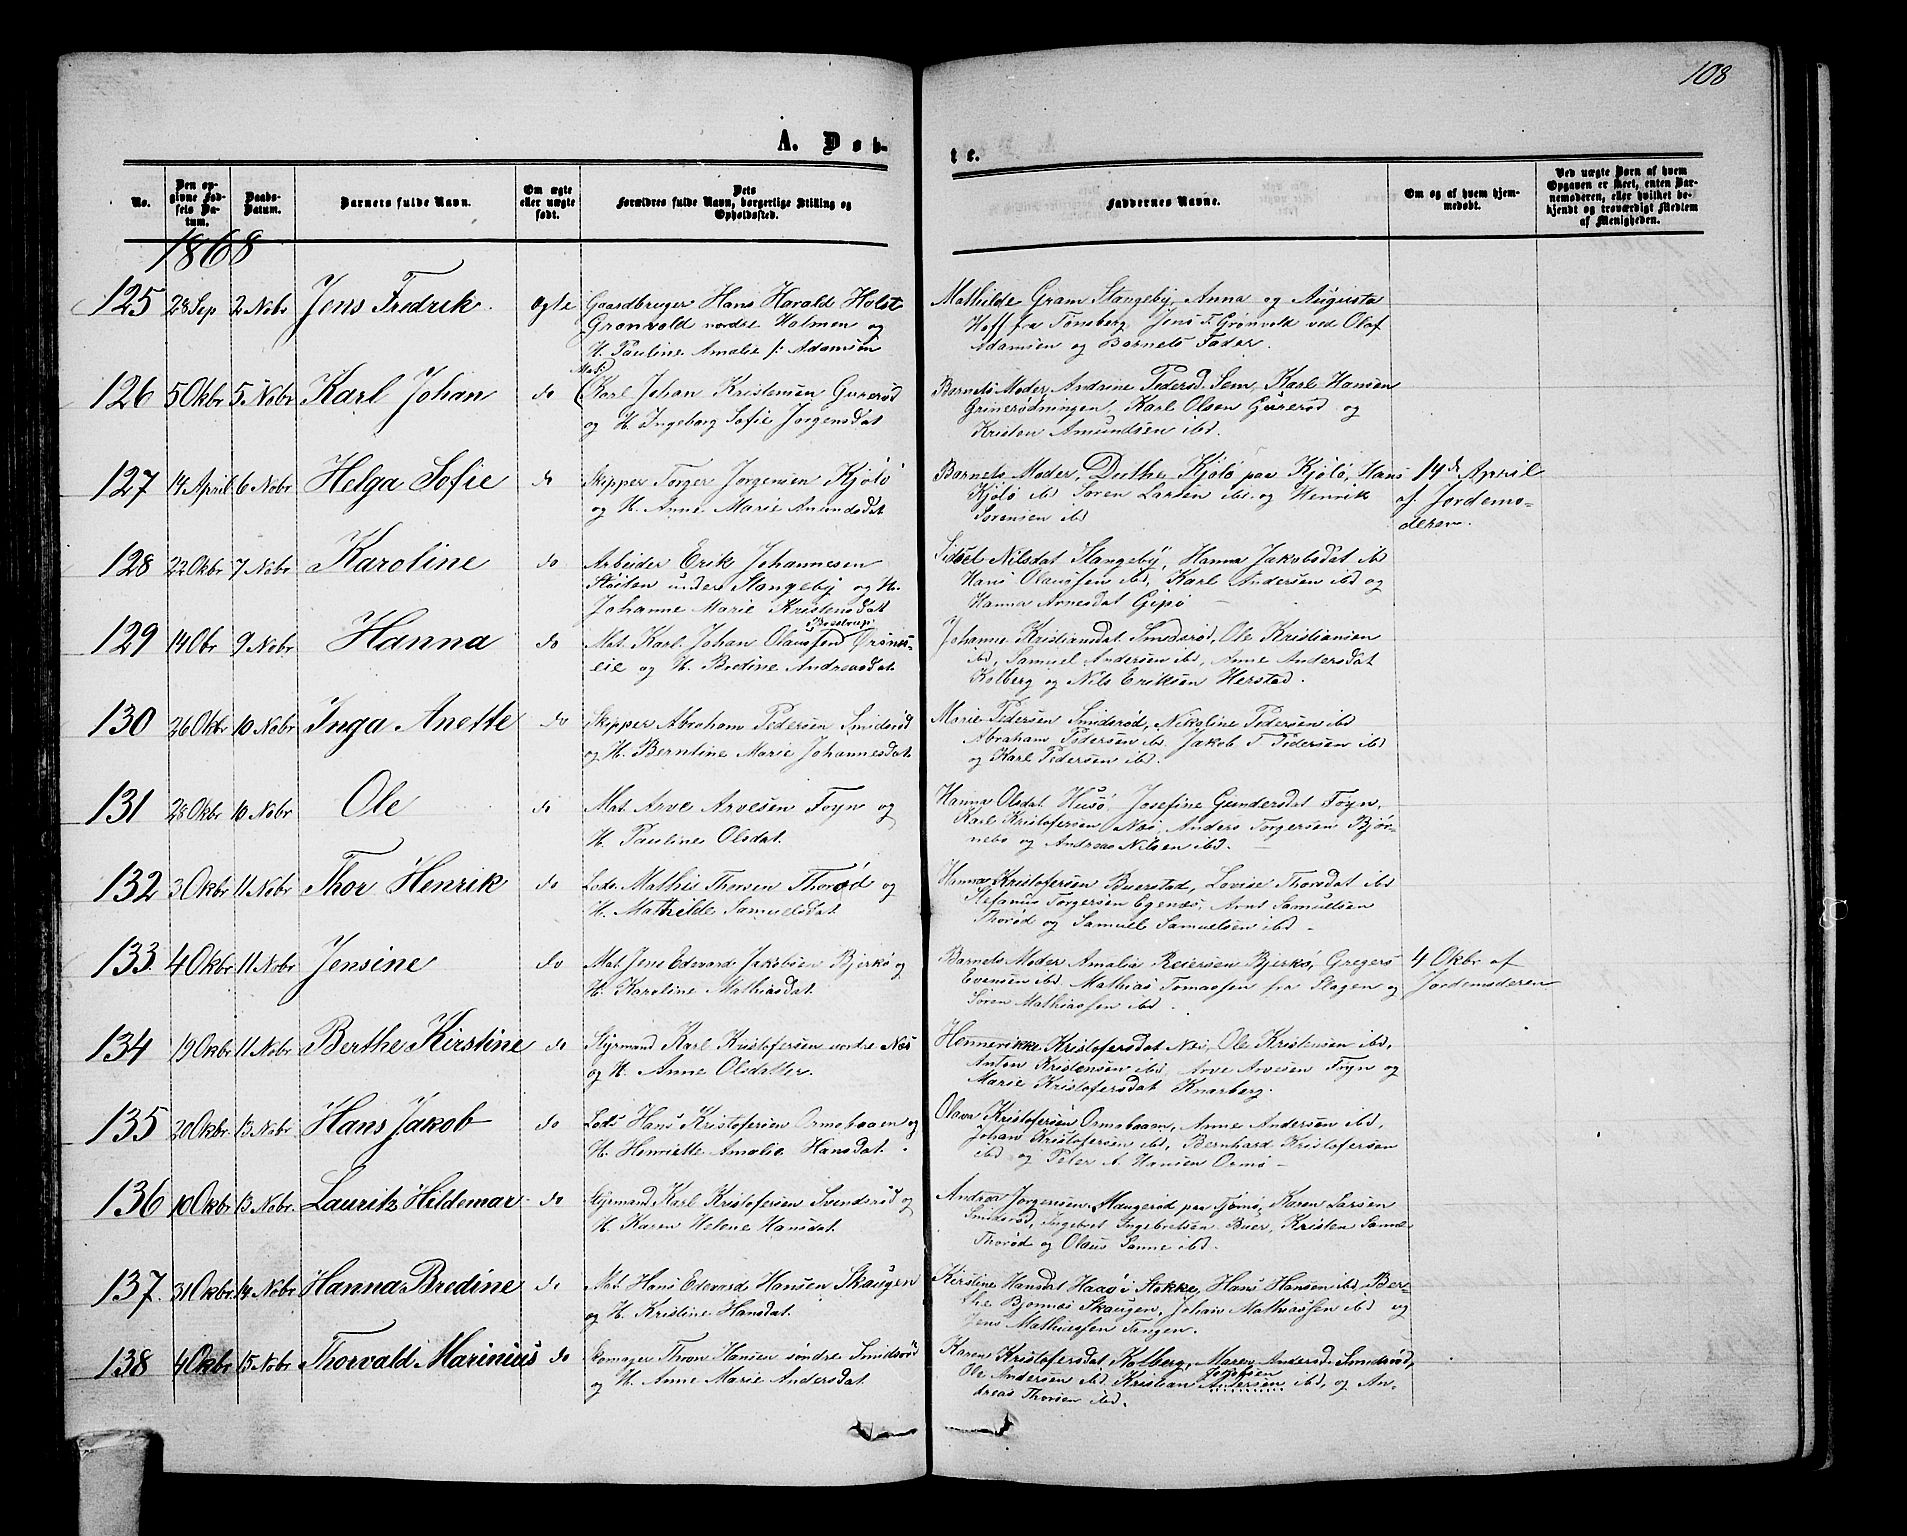 108
A. Døb-
te.
No.
Den op-
givne Fød-
sels Da-
tum.
Daabs-
Datum.
Barnets fulde Navn.
Om ægte
eller uægte
født.
Dets
Forældres fulde Navn, borgerlige Stilling og
Opholdssted.
Faddernes Navne.
Om og af hvem hjem-
medøbt.
Ved uægte Børn af hvem
Opgaven er skeet, enten Bar-
nemoderen, eller hvilket be-
kjendt og troværdigt Medlem
af Menigheden.
1868
125 28 Sep 2 Nobr Jens Fredrik. ægte Gaardbruger Hans Harald Holst
Grønvold nordre Holmen og
H. Pauline Amalie f: Adamsen
Mathilde Gram Stangeby, Anna og Augusta
Hoff fra Tønsberg, Jens F. Grønvold ved Olaf
Adamsen og Barnets Fader.
126 5 Okbr 5 Nobr Karl Johan do Mat. Karl Johan Kristensen Gurerød
og H. Ingeborg Sofie Jørgensdat
Barnets Moder, Andrine Pedersd. Sem, Karl Hansen
Grinerødningen, Karl Olsen Gurerød og
Kristen Amundsen ibd.
127 14 April 6 Nobr Helga Sofie do Skipper Torger Jørgensen Kjølø
og H. Anne Marie Amundsdat
Barnets Moder, Dorthe Kjøløe paa Kjøløe, Hans
Kjølø ibd Søren Larsen ibd. og Henrik
Sørensen ibd
14de April
af Jordemo-
deren.
128 22 Okbr 7 Nobr Karoline do Arbeider Erik Johannesen
Støiten under Stangeby og H.
Johanne Marie Kristensdat
Sidsel Nilsdat Stangeby, Hanna Jakobsdat ibd
Hans Olaussen ibd, Karl Andersen ibd og
Hanna Arnesdat Gipø
129 14 Obr 9 Nobr Hanna do Mat. Karl Johan Olaussen (Bostrup) Ørsnes-
eie og H. Bredine Andreasdat
Johanne Kristiansdat Smidsrød, Ole Kristiansen
ibd, Samuel Andersen ibd, Anne Andersdat
Kolberg og Nils Eriksen Herstad.
130 26 Okbr 10 Nobr Inga Anette do Skipper Abraham Pedersen Smidsrød
og H. Berntine Marie Johannesdat
Marie Pedersen Smidsrød, Nikoline Pedersen ibd
Abraham Pedersen ibd. Jakob T. Pedersen ibd
og Karl Pedersen ibd.
131 28 Okbr 10 Nobr Ole do Mat. Arve Arvesen Foyn og
H. Pauline Olsdat.
Hanna Olsdat Husø, Josefine Gundersdat Foyn,
Karl Kristofersen Næs, Anders Torgersen Bjør-
nebo og Andreas Nilsen ibd.
132 3 Okbr 11 Nobr Thor Henrik do Lods Mathis Thorsen Thorød og
H. Mathilde Samuelsdat.
Hanna Kristofersen Buerstad, Lovise Thorsdat ibd
Stefanus Torgersen Egenæs, Arnt Samuelsen
Thorød og Samuel Samuelsen ibd
133. 4 Okbr 11 Nobr Jensine do Mat. Jens Edvard Jakobsen Bjerkø og
H. Karoline Mathiasdat.
Barnets Moder Amalia Reiersen Bjerkø, Gregers
Evensen ibd. Mathias Tomassen fra Slagen og
Søren Mathiassen ibd.
4 Okbr af
Jordemoderen
134 19 Okbr 11 Nobr Berthe Kirstine do Styrmand Karl Kristofersen nordre Næs
og H. Anne Olsdatter.
Hennerikke Kristofersdat Næs, Ole Kristensen ibd,
Anton Kristensen ibd, Arve Arvesen Foyn og
Marie Kristofersdat Knarberg.
135 20 Okbr 13 Nobr Hans Jakob do Lods Hans Kristofersen Ormobaaen og
H. Henriette Amalie Hansdat.
Olava Kristofersen Ormobaaen, Anne Andersen ibd,
Johan Kristofersen ibd, Bernhard Kristofersen
ibd og Peter A. Hansen Ormø
136 10 Okbr 13 Nobr. Lauritz Hildemar do Styrmand Karl Kristofersen Svendsrød og
H. Karen Helene Hansdat.
Andrea Jørgensen Haugerød paa Tjømø, Karen Larsen
Smidsrød, Ingebret Ingebretsen Buer, Kristen Sanne
Thorød og Olaus Sanne ibd.
137. 31 Okbr 14 Nobr Hanna Bredine do Mat. Hans Edvard Hansen Skaugen
og H. Kristine Hansdat.
Kirstine Hansdat Haasø i Stokke, Hans Hansen ibd, Ber-
the Bjønnes Skaugen, Johan Mathiassen ibd og
Jens Mathiassen Tangen.
138 4 Okbr 15 Nobr Thorvald Marinius do Skomager Thron Hansen søndre Smidsrød
og H. Anne Marie Andersdat.
Karen Kristofersdat Kolberg, Maren Andersd. Smidsrød,
Ole Andersen ibd Kristian Andersen Jakobsen ibd, og An-
dreas Thorsen ibd.